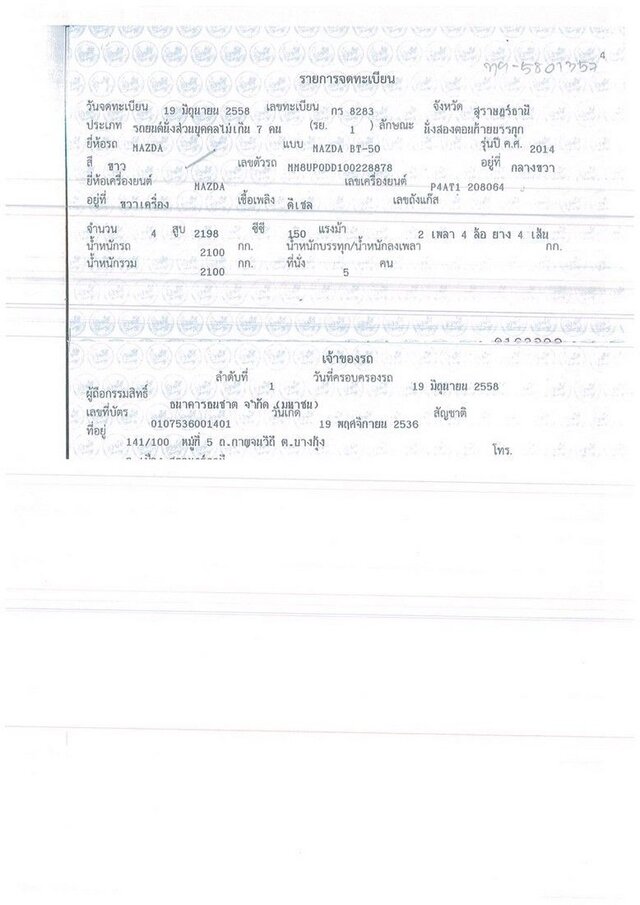 4
ทฯ-5801357
รายการจดทะเบียน
วันจดทะเบียน 19 มิถุนายน 2558 เลขทะเบียน กร 8283 จังหวัด สุราษฎร์ธานี
ประเภท รถยนต์นั่งส่วนบุคคลไม่เกิน 7 คน (รย. 1 ) ลักษณะ นั่งสองตอนท้ายบรรทุก
ยี่ห้อรถ MAZDA แบบ MAZDA BT-50 รุ่นปี ค.ศ. 2014
สี ขาว เลขตัวรถ MM8UP0DD100228878 อยู่ที่ กลางขวา
ยี่ห้อเครื่องยนต์ MAZDA เลขเครื่องยนต์ P4AT1 208064
อยู่ที่ ขวาเครื่อง เชื้อเพลิง ดีเซล เลขถังแก๊ส
จำนวน 4 สูบ 2198 ซีซี 150 แรงม้า 2 เพลา 4 ล้อ ยาง 4 เส้น
น้ำหนักรถ 2100 กก. น้ำหนักบรรทุก/น้ำหนักลงเพลา กก.
น้ำหนักรวม 2100 กก. ที่นั่ง 5 คน
เจ้าของรถ
ลำดับที่ 1 วันที่ครอบครองรถ 19 มิถุนายน 2558
ผู้ถือกรรมสิทธิ์ ธนาคารธนชาต จำกัด (มหาชน)
เลขที่บัตร 0107536001401 วันเกิด 19 พฤศจิกายน 2536 สัญชาติ
ที่อยู่ 141/100 หมู่ที่ 5 ถ.กาญจนวิถี ต.บางกุ้ง โทร.